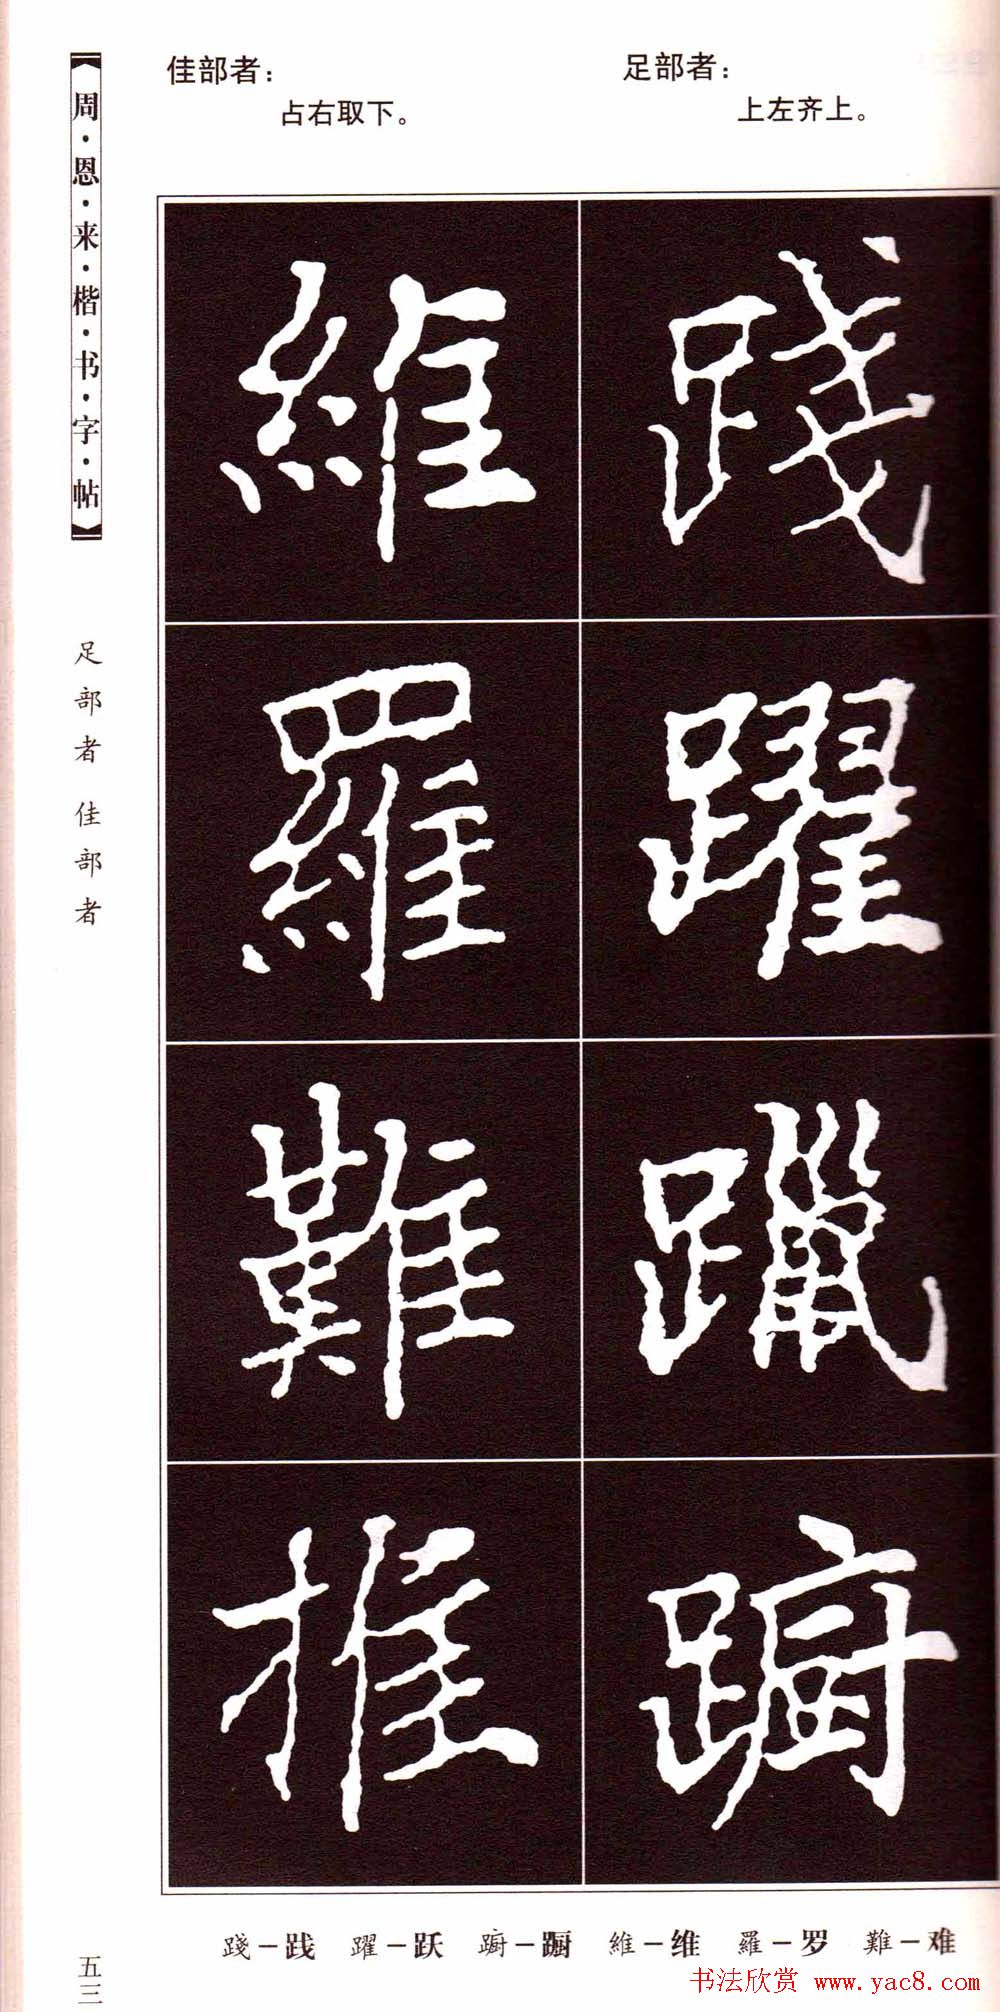 【周·恩·来·楷·书·字·帖】
足部者 佳部者
五三
足部者：
上左齐上。
佳部者：
占右取下。
踐
躍
躐
蹰
維
羅
難
推
踐－践 躍－跃 蹰－蹰 維－维 羅－罗 難－难
书法欣赏 www.yac8.com